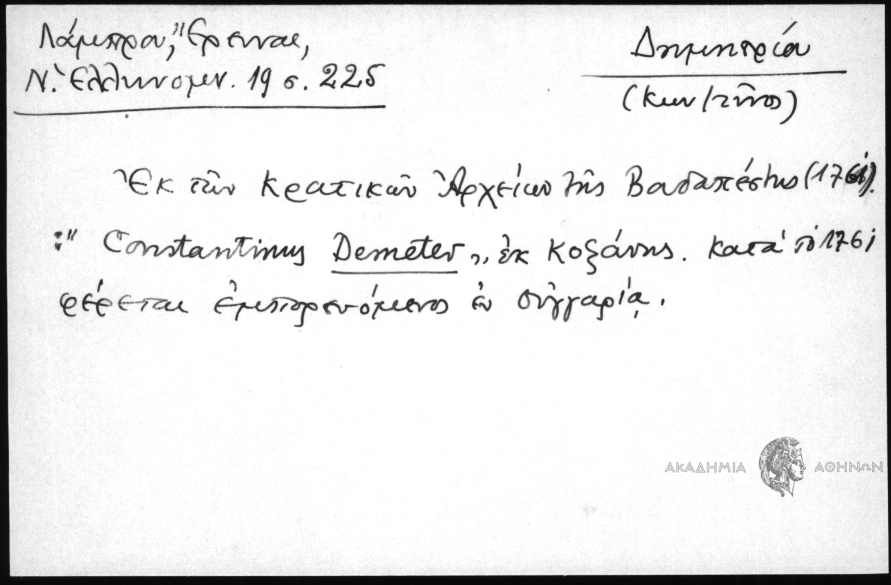 Λάμπρου, "Ερευναι,
Ν. Ἑλληνομν. 19 σ. 225
Δημητρίου
(Κων/τῖνος)
Ἐκ τῶν κρατικῶν Ἀρχείων τῆς Βουδαπέστης (1761).
:" Constantinus Demeter", ἐκ Κοζάνης. κατὰ τὸ 1761
φέρεται ἐμπορευόμενος ἐν Οὑγγαρίᾳ.
ΑΚΑΔΗΜΙΑ ΑΘΗΝΩΝ